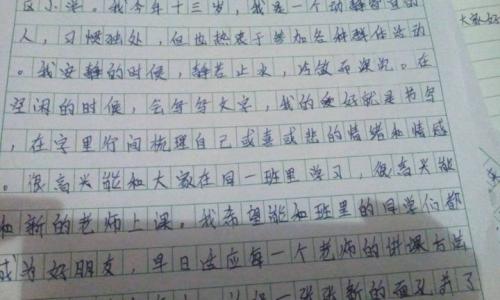 我今年十三岁,我是一个动静皆宜的
人,习惯独处,但也热衷于参加各种群体活动
。我安静的时候,静若止水,内敛而深沉。在
空闲的时候,会写写文字,我的爱好就是书写
,在字里行间梳理自己或喜或悲的情绪和情感
。很高兴能和大家在同一班里学习,很高兴能
和新的老师上课。我希望能和班里的同学们都
成为好朋友,早日适应每一个老师的讲课方法
一张张新的面孔
大家好